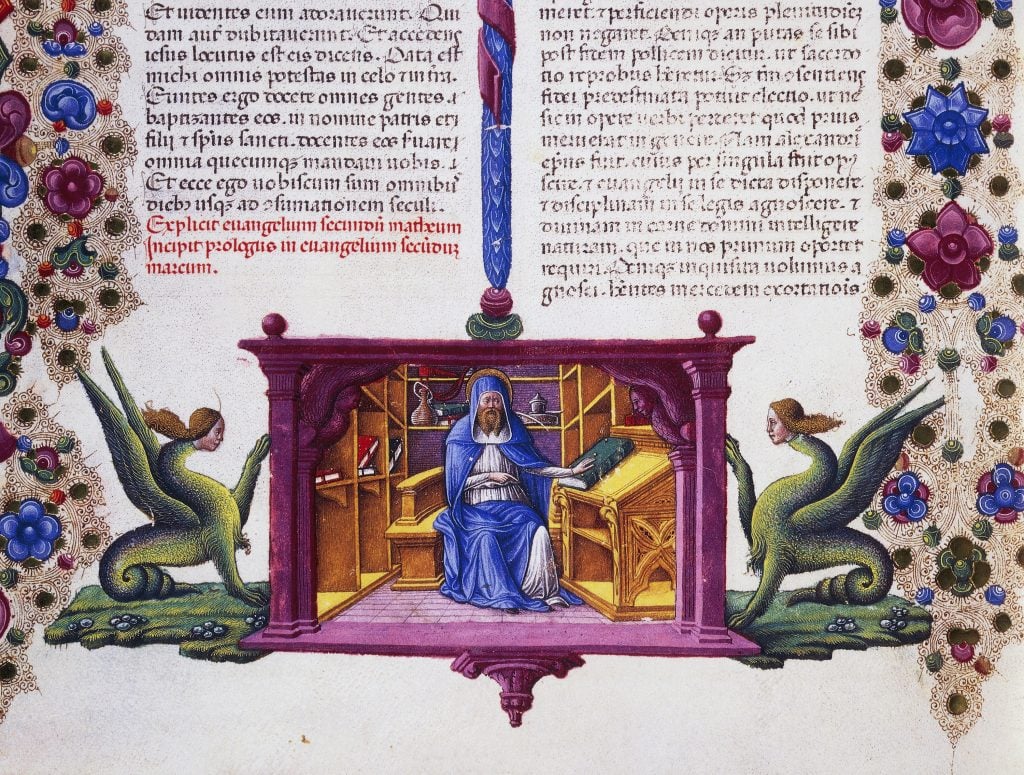 Et uidentes eum adorauerunt. Qui
dam aut̃ dubitauerunt. Et accedens
iesus locutus est eis dicens. Data est
michi omnis potestas in celo ⁊ in t̃ra.
Euntes ergo docete omnes gentes.
baptizantes eos. in nomine patris et
filii ⁊ sp̃us sancti. docentes eos s̃uare
omnia quecumq̃ mandaui uobis.
Et ecce ego uobiscum sum omnibꝰ
diebꝰ usq̃ ad ↄsumationem seculi.
Explicit euangelium secundũ matheum
Incipit prologus in euangelium secũduȝ
marcum.
meret. ⁊ perficiendi operis plenitudineȝ
non negaret. Deniq̃ amputasse sibi
post fidem pollicem dicitur. ut sacerdo
tio reprobus h̃retur. Sȝ tm̃ ↄsentiens
fidei predestinata potuit electio. ut nec
sic in opere uerbi perderet quod prius
meruerat in genere. Nam alexandrie
ep̃us fuit. cuius per singula fuit opꝰ
scire. ⁊ euangelii in se dicta disponere.
⁊ disciplinam in se legis agnoscere. ⁊
diuinam in carne domini intelligere
naturam. que in nos primum oportet
requiri. Deniq̃ inquisita uolumus
agnosci. h̃entes mercedem exortationis